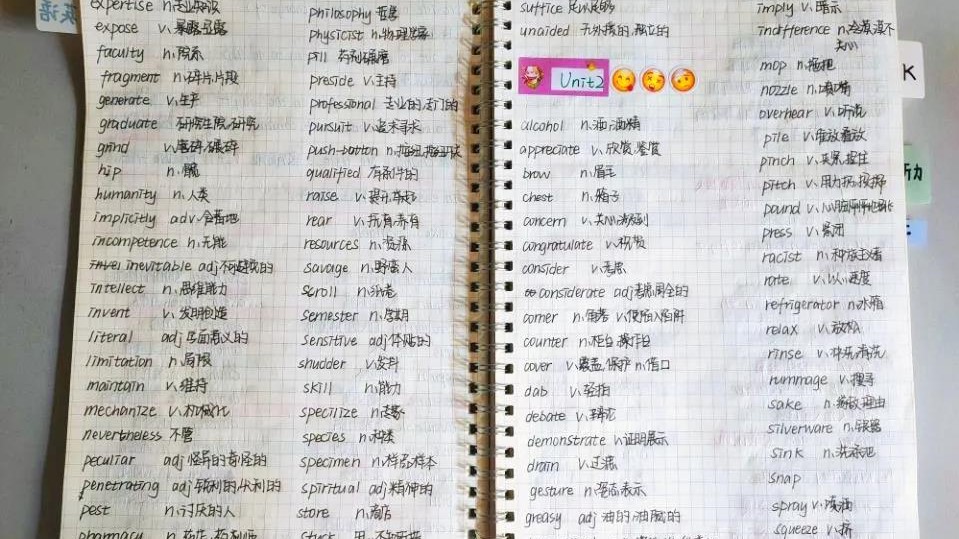 expertise n.专业知识
expose v.暴露.显露
faculty n.院系
fragment n.碎片.片段
generate v.生产
graduate 研究生院.研究
grind v.磨碎.碾碎
hip n.髋
humanity n.人类
implicitly adv.含蓄地
incompetence n.无能
inevitable adj不可避免的
intellect n.思维能力
invent v.发明创造
literal adj字面意义的
limitation n.局限
maintain v.维持
mechanize v.机械化
nevertheless 不管
peculiar adj怪异的奇怪的
penetrating adj锐利的尖利的
pest n.讨厌的人
pharmacy n.药店.药剂师
philosophy 哲学
physicist n.物理学家
pill 药剂
preside v.主持
professional 专业的.专门的
pursuit v.追求寻求
push-button n.
qualified 有条件的
raise v.提升.举起
rear v.抚育.养育
resources n.资源
savage n.野蛮人
scroll n.
semester n.学期
sensitive adj体贴的
shudder v.发抖
skill n.能力
specilize n.专家
species n.种类
specimen n.样品样本
spiritual adj精神的
store n.商店
stuck
suffice 足以.足够
unaided 无外援的.独立的
Unit2
alcohol n.酒.酒精
appreciate v.欣赏.鉴赏
brow n.眉毛
chest n.箱子
concern v.关心.涉及到
congratulate v.祝贺
consider v.考虑
considerate adj考虑周全的
corner n.角落 v.使陷入困所
counter n.柜台.操作台
cover v.覆盖.保护 n.借口
dab v.轻拍
debate v.辩论
demonstrate v.证明展示
drain v.过滤
gesture n.姿态表示
greasy adj油的油腻的
imply v.暗示
indifference n.冷漠.漠不关心
mop n.拖把
nozzle n.喷嘴
overhear v.听说
pile v.堆放叠放
pinch v.夹紧.捏住
pitch v.用力扔.投掷
pound v.心脏怦怦地跳
press v.紧闭
racist n.种族主义者
rate v.以..速度
refrigerator n.冰箱
relax v.放松
rinse v.冲洗.清洗
rummage v.搜寻
sake n.缘故.理由
silverware n.银器
sink n.洗涤池
snap
spray v.喷洒
squeeze v.挤
K